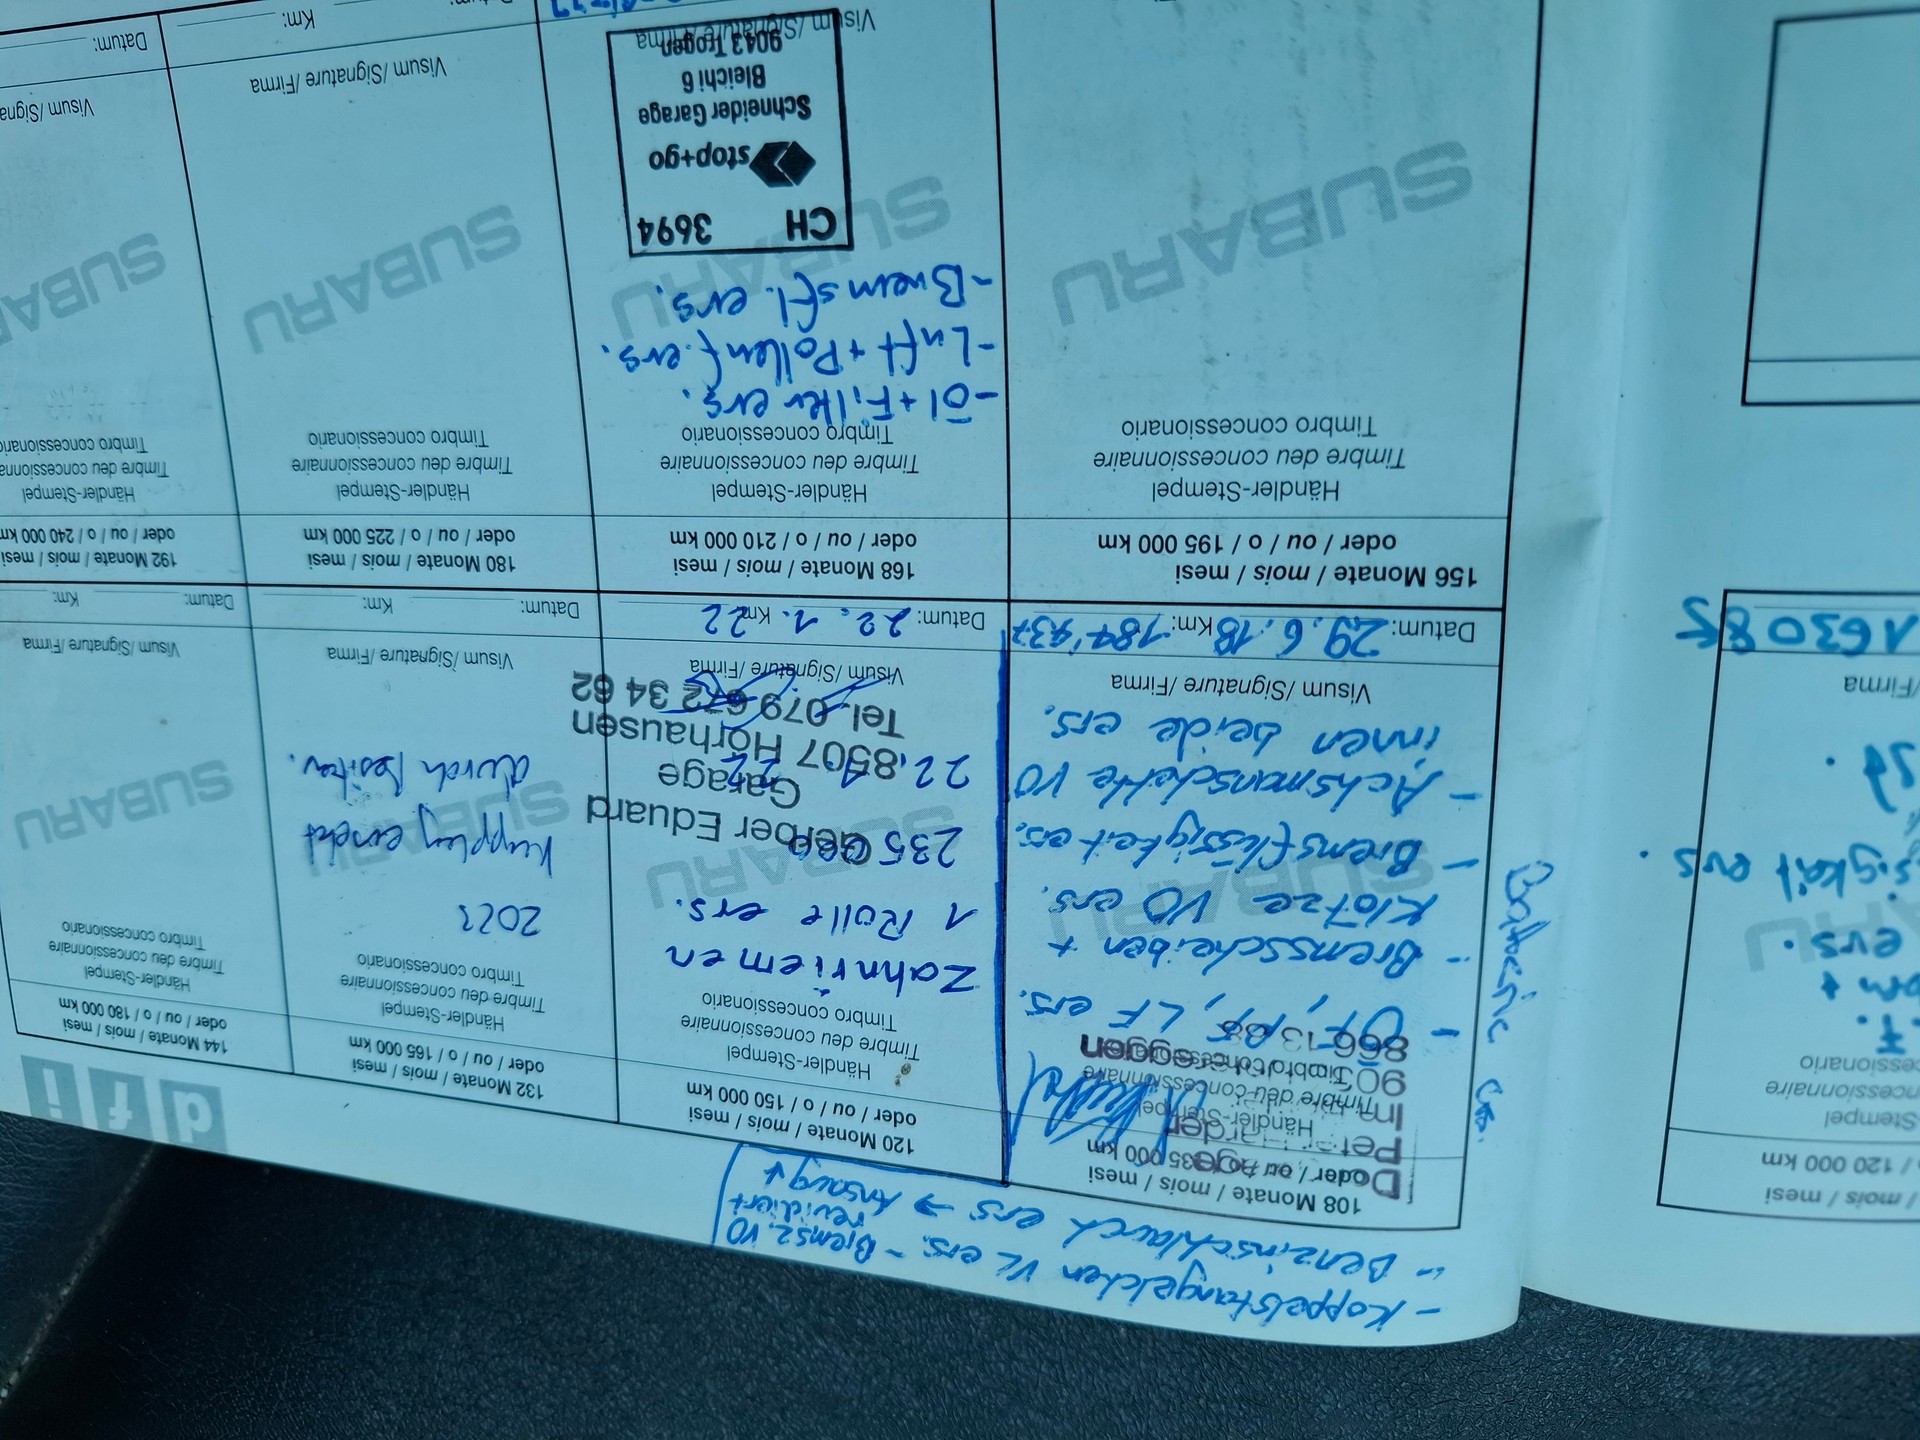 - Koppelstangelchen VL ers. - Bremsz. VO
revidiert
- Benzinschlauch ers → Ansaug +
108 Monate / mois / mesi
oder / ou / o / 135 000 km
Händler-Stempel
Timbre deu concessionnaire
Timbro concessionario
Peter
90
- ÖF, PF, LF ers.
- Bremsscheiben +
Klötze VO ers.
- Bremsflüssigkeit ers.
- Achsmanschette VO
innen beide ers.
Visum / Signature / Firma
Datum: 29.6.18 Km: 184'437
Batterie ers.
120 Monate / mois / mesi
oder / ou / o / 150 000 km
Händler-Stempel
Timbre deu concessionnaire
Timbro concessionario
Zahnriemen
1 Rolle ers.
235 000
Gerber Eduard
Garage
8507 Hörhausen
Tel. 079 672 34 62
Visum / Signature / Firma
Datum: 22. 1. Km: 22
132 Monate / mois / mesi
oder / ou / o / 165 000 km
Händler-Stempel
Timbre deu concessionnaire
Timbro concessionario
Kupplung
durch
Visum / Signature / Firma
Datum: Km:
dfi
144 Monate / mois / mesi
oder / ou / o / 180 000 km
Händler-Stempel
Timbre deu concessionnaire
Timbro concessionario
SUBARU
Visum / Signature / Firma
Datum: Km:
156 Monate / mois / mesi
oder / ou / o / 195 000 km
Händler-Stempel
Timbre deu concessionnaire
Timbro concessionario
SUBARU
168 Monate / mois / mesi
oder / ou / o / 210 000 km
Händler-Stempel
Timbre deu concessionnaire
Timbro concessionario
- Öl + Filter ers.
- Luft + Pollenf. ers.
- Bremsfl. ers.
SUBARU
CH 3694
stop+go
Schneider Garage
Bleichi 6
9043 Trogen
Visum / Signature / Firma
180 Monate / mois / mesi
oder / ou / o / 225 000 km
Händler-Stempel
Timbre deu concessionnaire
Timbro concessionario
SUBARU
Visum / Signature / Firma
Datum: Km:
192 Monate / mois / mesi
oder / ou / o / 240 000 km
Händler-Stempel
Timbre deu concessionnaire
Timbro concessionario
SUBARU
Visum / Signa
Datum:
/ mois / mesi
/ 120 000 km
Stempel
concessionnaire
cessionario
ers.
sigkeit ers.
/ Firma
163085